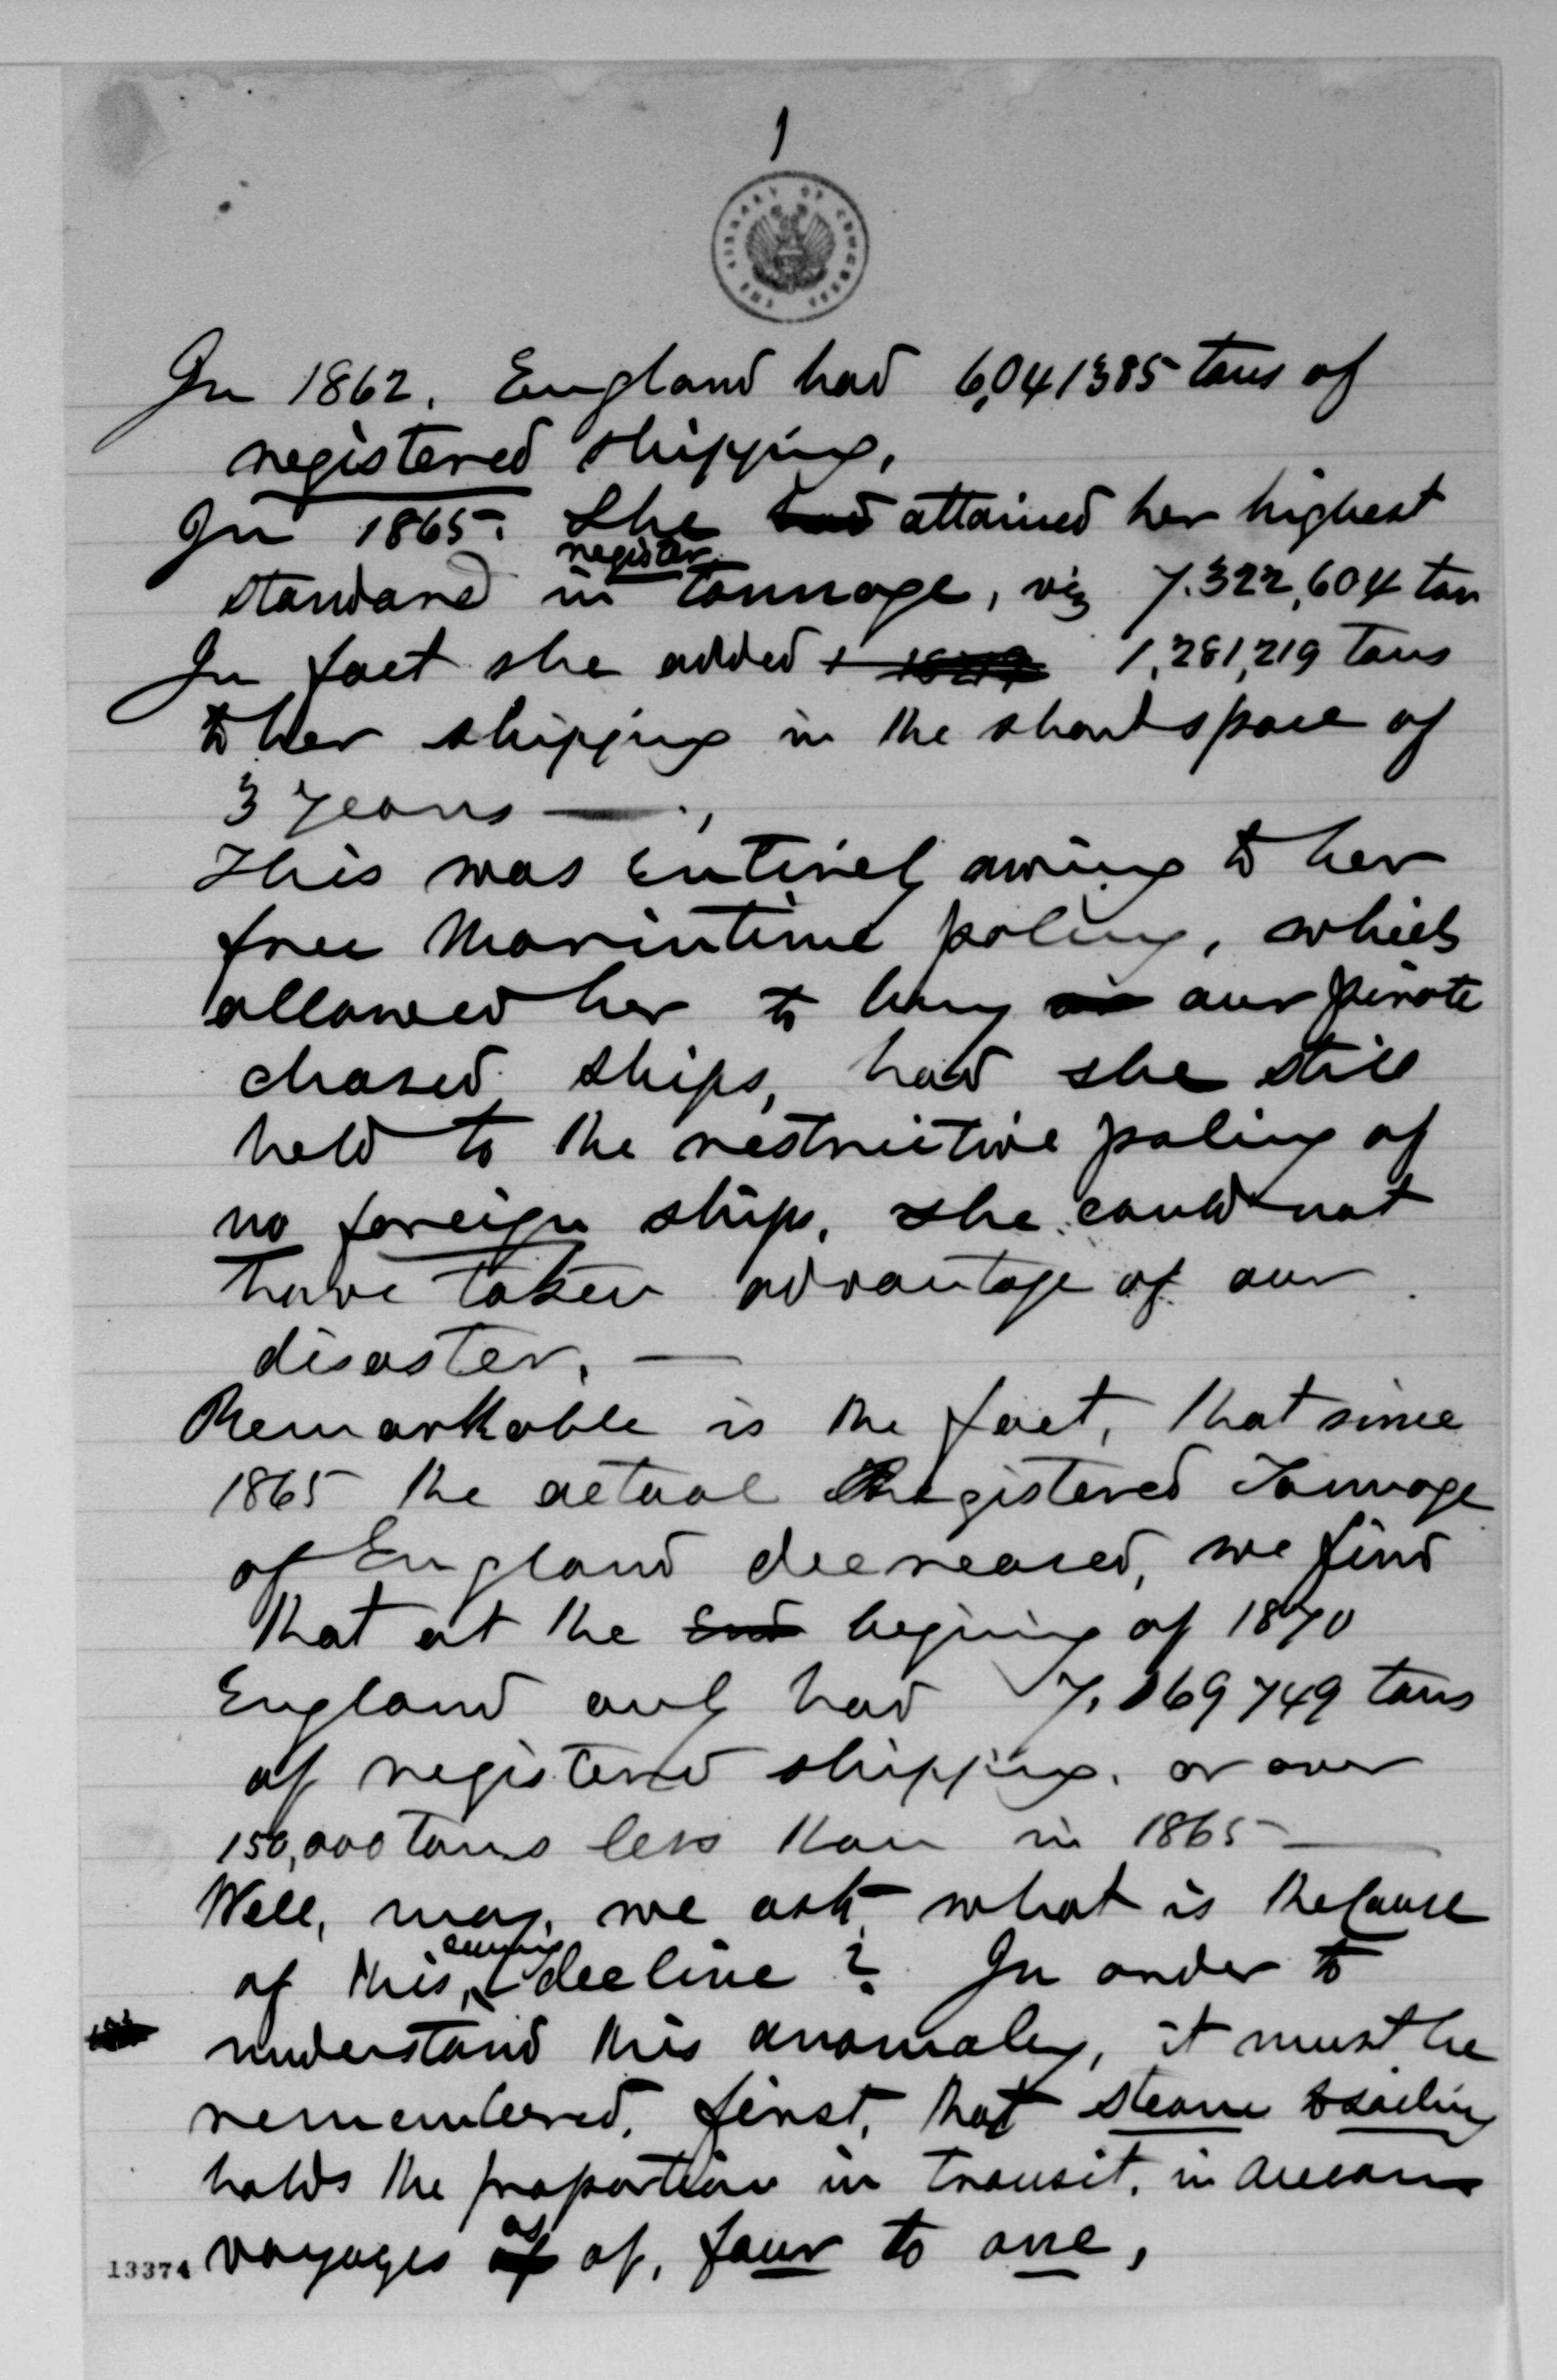 1
THE LIBRARY OF CONGRESS
In 1862. England had 6,041385 tons of
registered shipping.
In 1865. She had attained her highest
register
standard in tonnage, viz 7.322,604 ton
In fact she added 1,281,219 tons
to her shipping in the short space of
3 years —
This was entirely owing to her
free Marintime policy, which
allowed her to buy our pirate
chased ships, had she still
held to the restrictive policy of
no foreign ships, she could not
have taken advantage of our
disaster. —
Remarkable is the fact, that since
1865 the actual Registered Tonnage
of England decreased, we find
that at the end begining of 1870
England only had 7.169749 tons
of registered shipping. or over
150,000 tons less than in 1865 —
Well, may, we ask what is the Cause
seeming
of this, decline? In order to
understand this anomaly, it must be
remembered, first, that steam to sailing
holds the proportion in transit, in Ocean
as
voyages of of, four to one,
13374